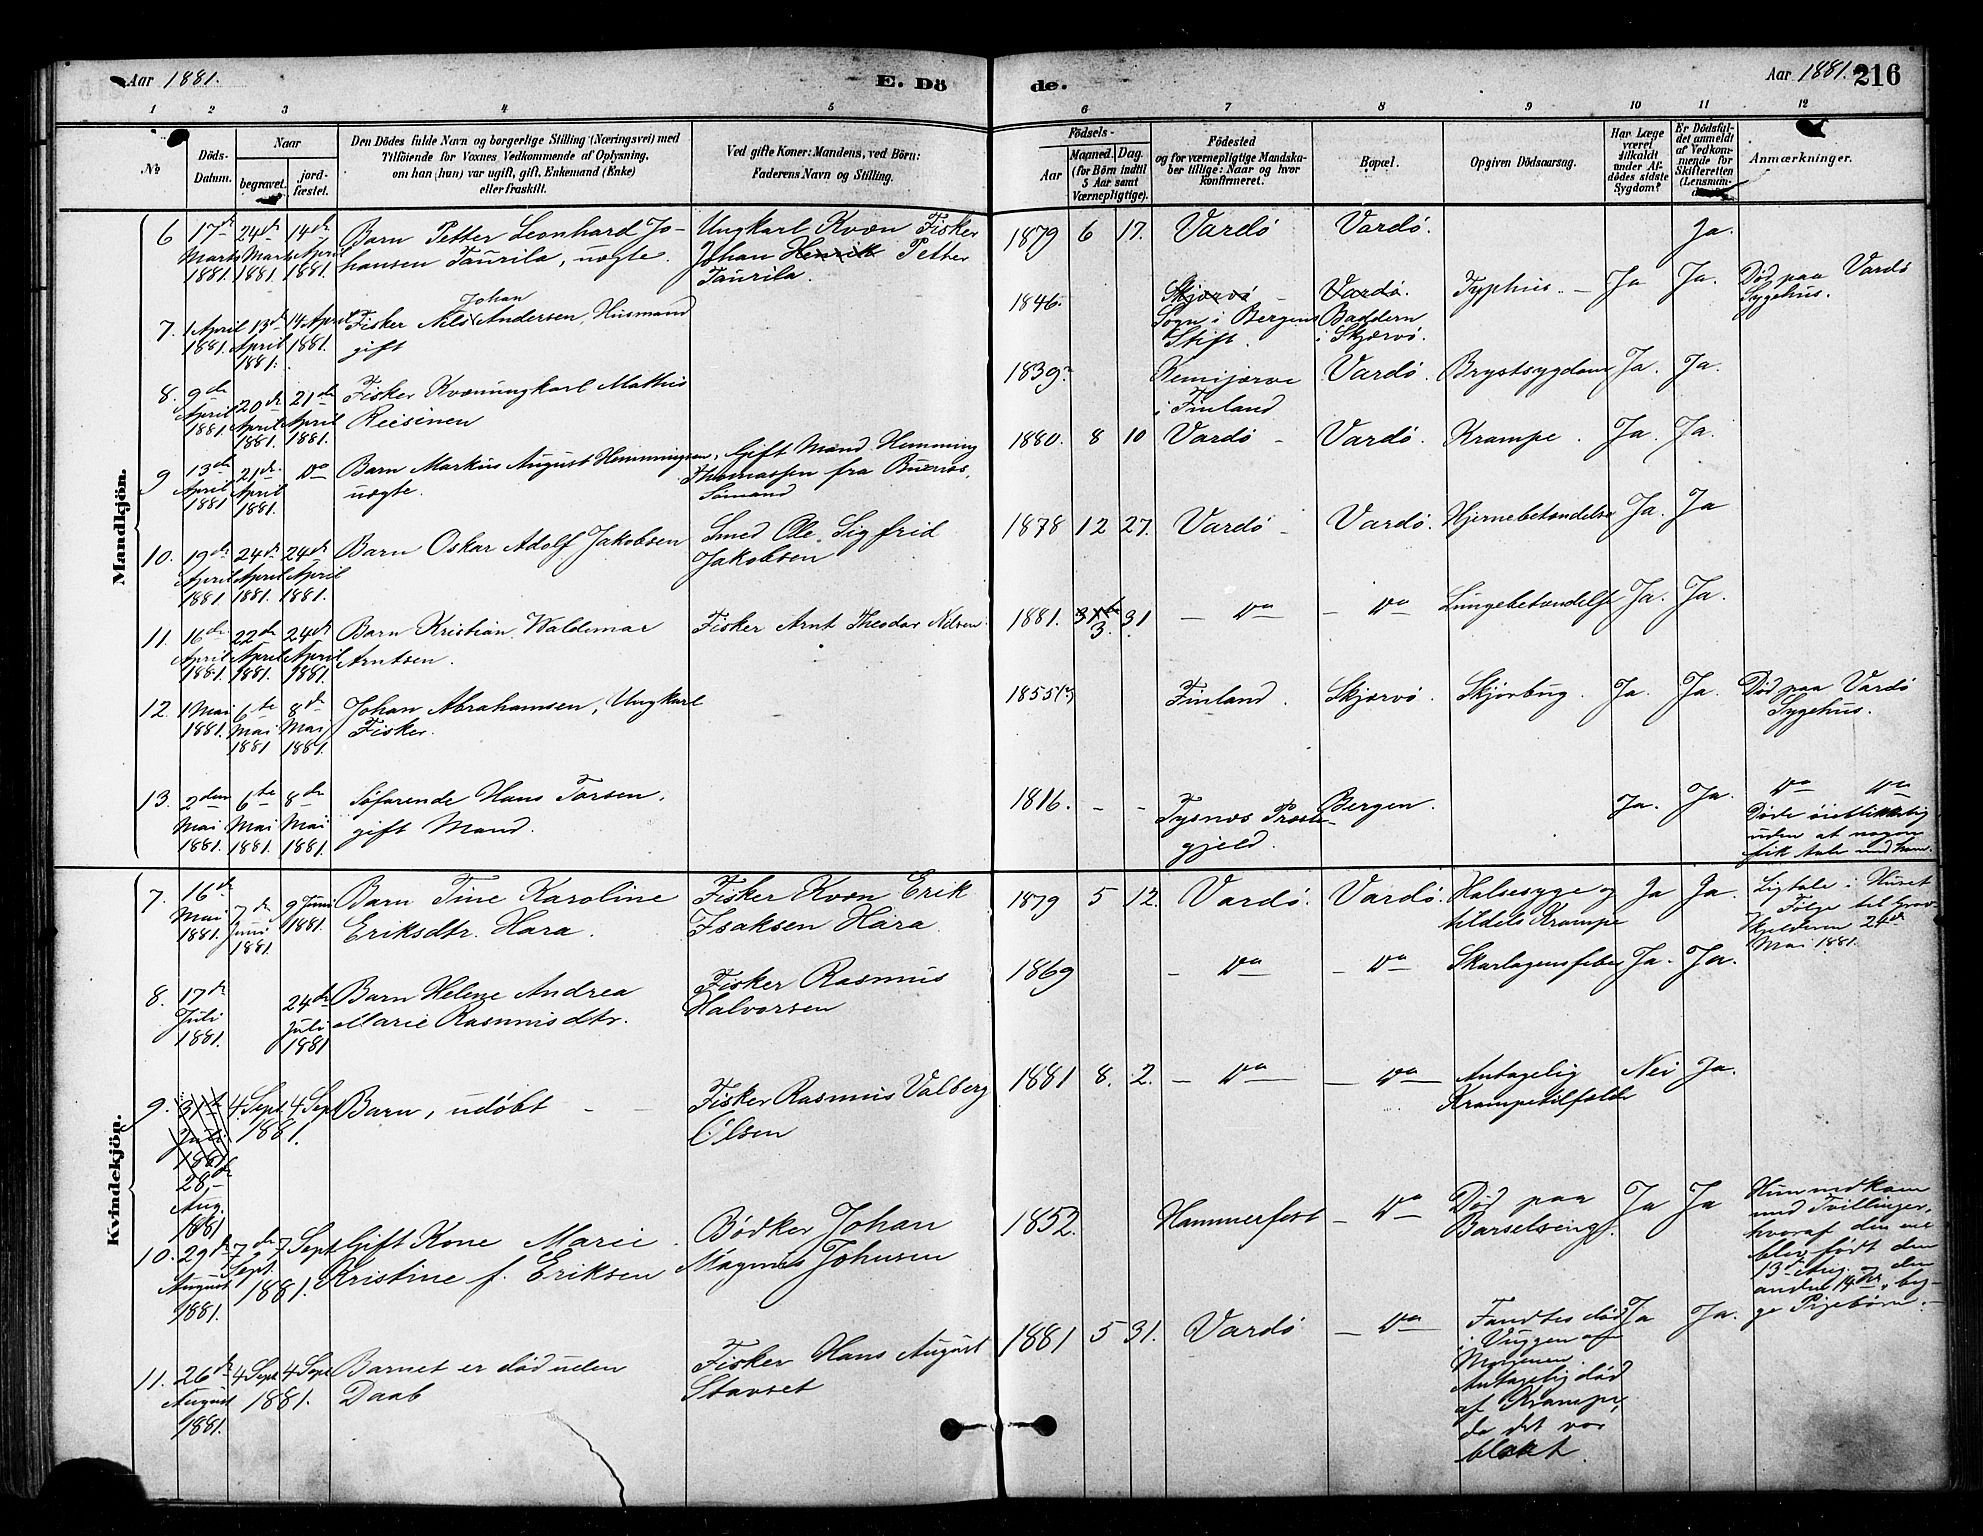 Aar 1881.
E. Dö
de.
Aar 1881.
216
1 2 3 4 5 6 7 8 9 10 11 12
No
Döds-Datum.
Naar
begravet.
jord-fæstet.
Den Dödes fulde Navn og borgerlige Stilling (Næringsvei) med
Tilföiende for Voxnes Vedkommende af Oplysning,
om han (hun) var ugift, gift, Enkemand (Enke)
eller fraskilt.
Ved gifte Koner: Mandens, ved Börn:
Faderens Navn og Stilling.
Födsels-
Aar
Maaned. Dag.
(for Börn indtil
5 Aar samt
Værnepligtige).
Födested
og for værnepligtige Mandska-
ber tillige: Naar og hvor
konfirmeret.
Bopæl.
Opgiven Dödsaarsag.
Har Læge
været
tilkaldt
under Af-
dödes sidste
Sygdom?
Er Dödsfal-
det anmeldt
af Vedkom-
mende for
Skifteretten
(Lensman-
Anmærkninger.
Mandkjön.
6 17de Marts 1881. 24de Marts 1881. 14de April 1881. Barn Petter Leonhard Jo-
hansen Taurila, uægte. Ungkarl Kvæn Fisker
Johan Henrik Petter
Taurila. 1879 6 17. Vardö Vardö. Ja.
7. 1 April 1881. 13de April 1881. 14 April 1881. Fisker Nils Johan Andersen, Husmand
gift 1846. Skjærvö
Sogn i Bergens
Stift. Vardö.
Baddern
i Skjærvö. Typhus. Ja Ja. Död paa Vardö
Sygehus.
8. 9de April 1881. 20de April 1881. 21de April 1881. Fisker Kvænungkarl Mathis
Reisinen 1839. Kemijærve
i Finland Vardö. Brystsygdom Ja. Ja.
9 13de April 1881 21de April 1881. Do Barn Markus August Hemmingsen,
uægte. Gift Mand Hemming
Thomassen fra Buxnæs,
Sömand 1880. 8 10 Vardö Vardö. Krampe. Ja. Ja.
10. 19de April 1881 24de April 1881. 24de April 1881. Barn Oskar Adolf Jakobsen Smed Ole Sigfrid
Jakobsen 1878 12 27. Vardö Vardö. Hjernebetændelse Ja. Ja
11. 16de April 1881. 22de April 1881. 24de April 1881. Barn Kristian Waldemar
Arntsen. Fisker Arnt Theodor Nilsen 1881. 3. 31 Do Do Lungebetændelse Ja. Ja.
12. 1 Mai 1881. 6te Mai 1881 8de Mai 1881. Johan Abrahamsen, Ungkarl
Fisker. 1855 Finland. Skjærvö. Skjörbug. Ja. Ja. Död paa Vardö
Sygehus.
13. 2den Mai 1881. 6te Mai 1881. 8de Mai 1881. Söfarende Hans Torsen,
gift Mand. 1816. - - Tysnæs Præste-
gjeld. Bergen. Ja. Ja. Do Do
Döde öieblikkelig
uden at nogen
fik tale med ham.
Kvindekjön.
7. 16de Mai 1881. 7de Juni 1881 9 Juni 1881. Barn Tine Karoline
Eriksdtr. Hara. Fisker Kvæn Erik
Isaksen Hara. 1879 5 12. Vardö. Vardö. Halsesyge og
tildels Krampe Ja Ja. Ligtale i Huset
Fölge til Grav-
21de
Mai 1881.
8. 17de Juli 1881. 24de Juli 1881 Barn Helene Andrea
Marie Rasmusdtr. Fisker Rasmus
Halvorsen 1869 Do Do Skarlagensfeber Ja. Ja.
9. 31te Juli 1881 28de Aug. 1881 4 Sept 4 Sept 1881. Barn, udöbt Fisker Rasmus Valberg
Olsen 1881 8. 2. Do Do Antagelig
Krampetilfælde Nei Ja.
10. 29de August 1881. 7de Sept. 7 Sept 1881. Gift Kone Marie
Kristine f. Eriksen Bödker Johan
Magnus Johnsen 1852. Hammerfest Do Död paa
Barselseng. Ja Ja Hun nedkom
med Tvillinger,
hvoraf den ene
blev födt den
13de Aug. og den
anden 14de, beg-
ge Pigebörn.
11. 26de August 1881. 4 Sept 4 Sept 1881. Barnet er död uden
Daab Fisker Hans August
Stavset 1881 5 31. Vardö Do Fandtes död
i Vuggen om
Morgenen.
Antagelig död
af Krampe,
da det var
blaat. Ja Ja.